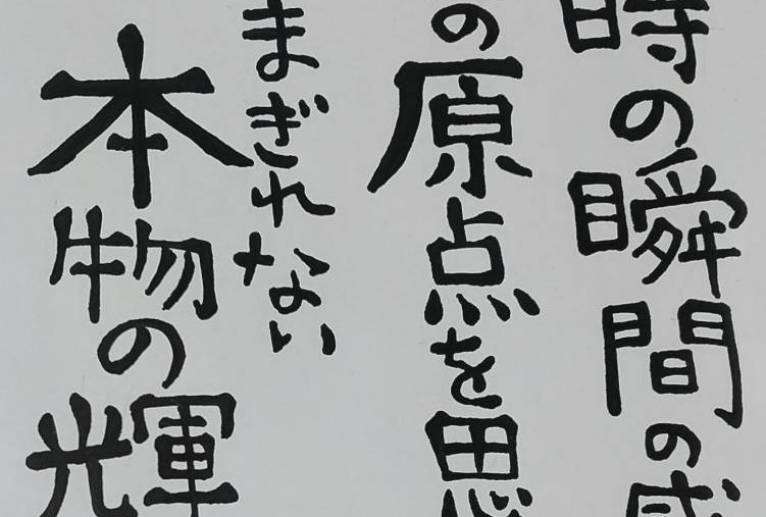 時の瞬間の感
の原点を思
まぎれない
本物の輝